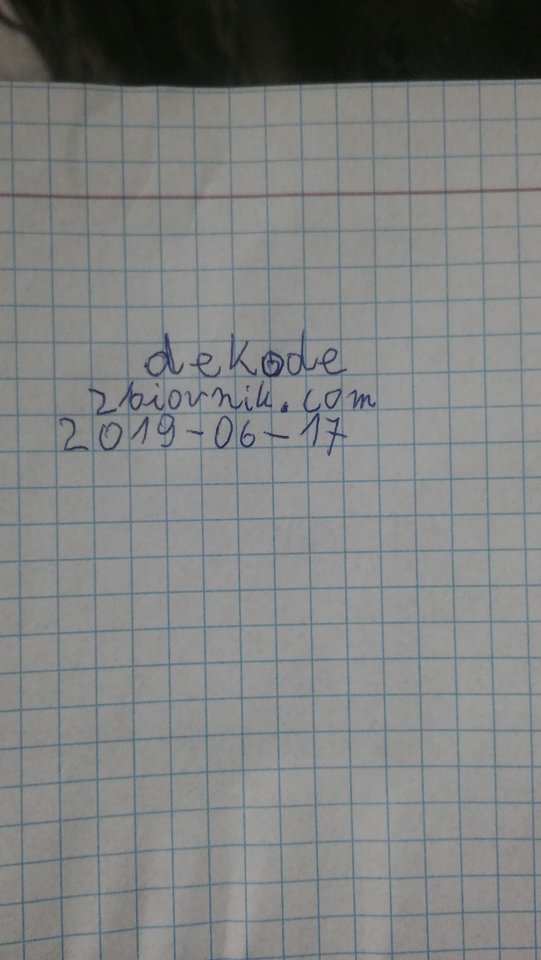 dekode
zbiornik.com
2019-06-17